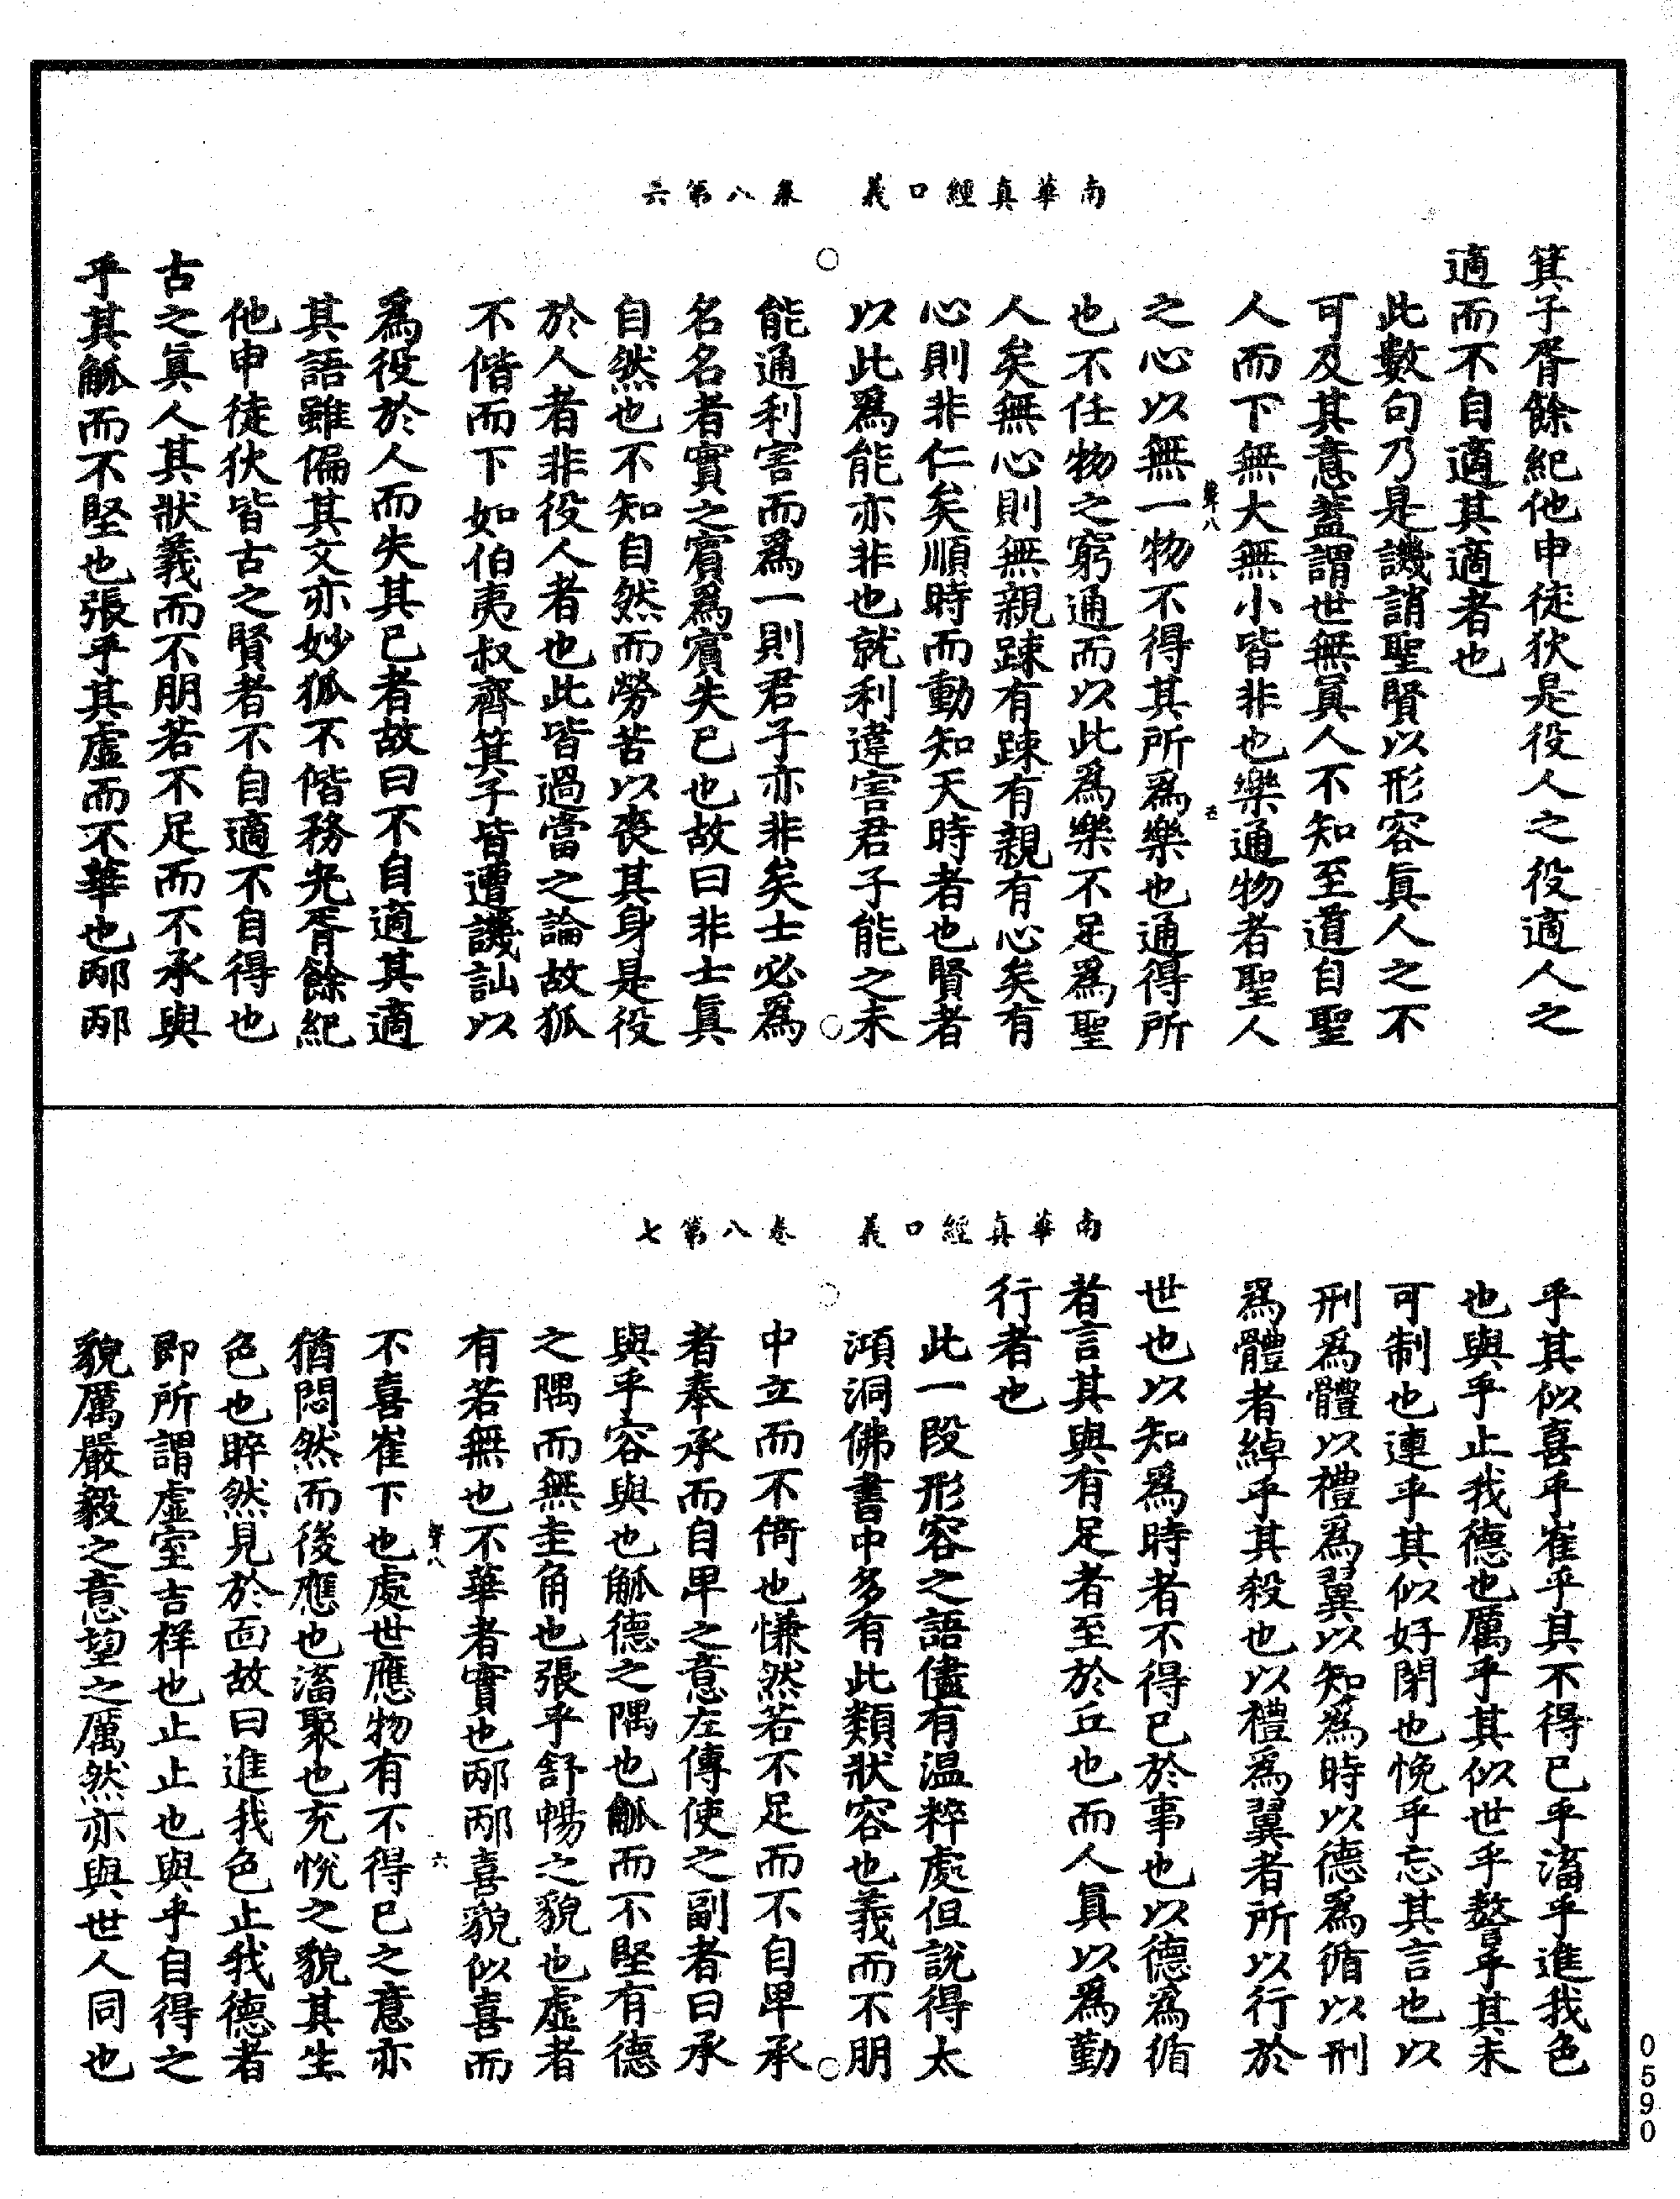 南華真經口義　卷八第六
箕子胥餘紀他申徒狄是役人之役適人之
適而不自適其適者也
此數句乃是譏誚聖賢以形容眞人之不
可及其意蓋謂世無眞人不知至道自聖
人而下無大無小皆非也樂通物者聖人
之心以無一物不得其所爲樂也通得所
也不任物之窮通而以此爲樂不足爲聖
人矣無心則無親踈有踈有親有心矣有
心則非仁矣順時而動知天時者也賢者
以此爲能亦非也就利違害君子能之未
能通利害而爲一則君子亦非矣士必爲
名名者實之賓爲賓失已也故曰非士眞
自然也不知自然而勞苦以喪其身是役
於人者非役人者也此皆過當之論故狐
不偕而下如伯夷叔齊箕子皆遭譏訕以
爲役於人而失其已者故曰不自適其適
其語雖偏其文亦妙狐不偕務光胥餘紀
他申徒狄皆古之賢者不自適不自得也
古之眞人其狀義而不朋若不足而不承與
乎其觚而不堅也張乎其虛而不華也邴邴
南華真經口義　卷八第七
乎其似喜乎崔乎其不得已乎滀乎進我色
也與乎止我德也厲乎其似世乎謷乎其未
可制也連乎其似好閉也悗乎忘其言也以
刑爲體以禮爲翼以知爲時以德爲循以刑
爲體者綽乎其殺也以禮爲翼者所以行於
世也以知爲時者不得已於事也以德爲循
者言其與有足者至於丘也而人眞以爲勤
行者也
此一段形容之語儘有温粹處但說得太
澒洞佛書中多有此類狀容也義而不朋
中立而不倚也慊然若不足而不自卑承
者奉承而自卑之意左傳使之副者曰承
與乎容與也觚德之隅也觚而不堅有德
之隅而無圭角也張乎舒暢之貌也虛者
有若無也不華者實也邴邴喜貌似喜而
不喜崔下也處世應物有不得已之意亦
猶悶然而後應也滀聚也充悅之貌其生
色也睟然見於面故曰進我色止我德者
即所謂虛室吉祥也止止也與乎自得之
貌厲嚴毅之意望之厲然亦與世人同也
0590